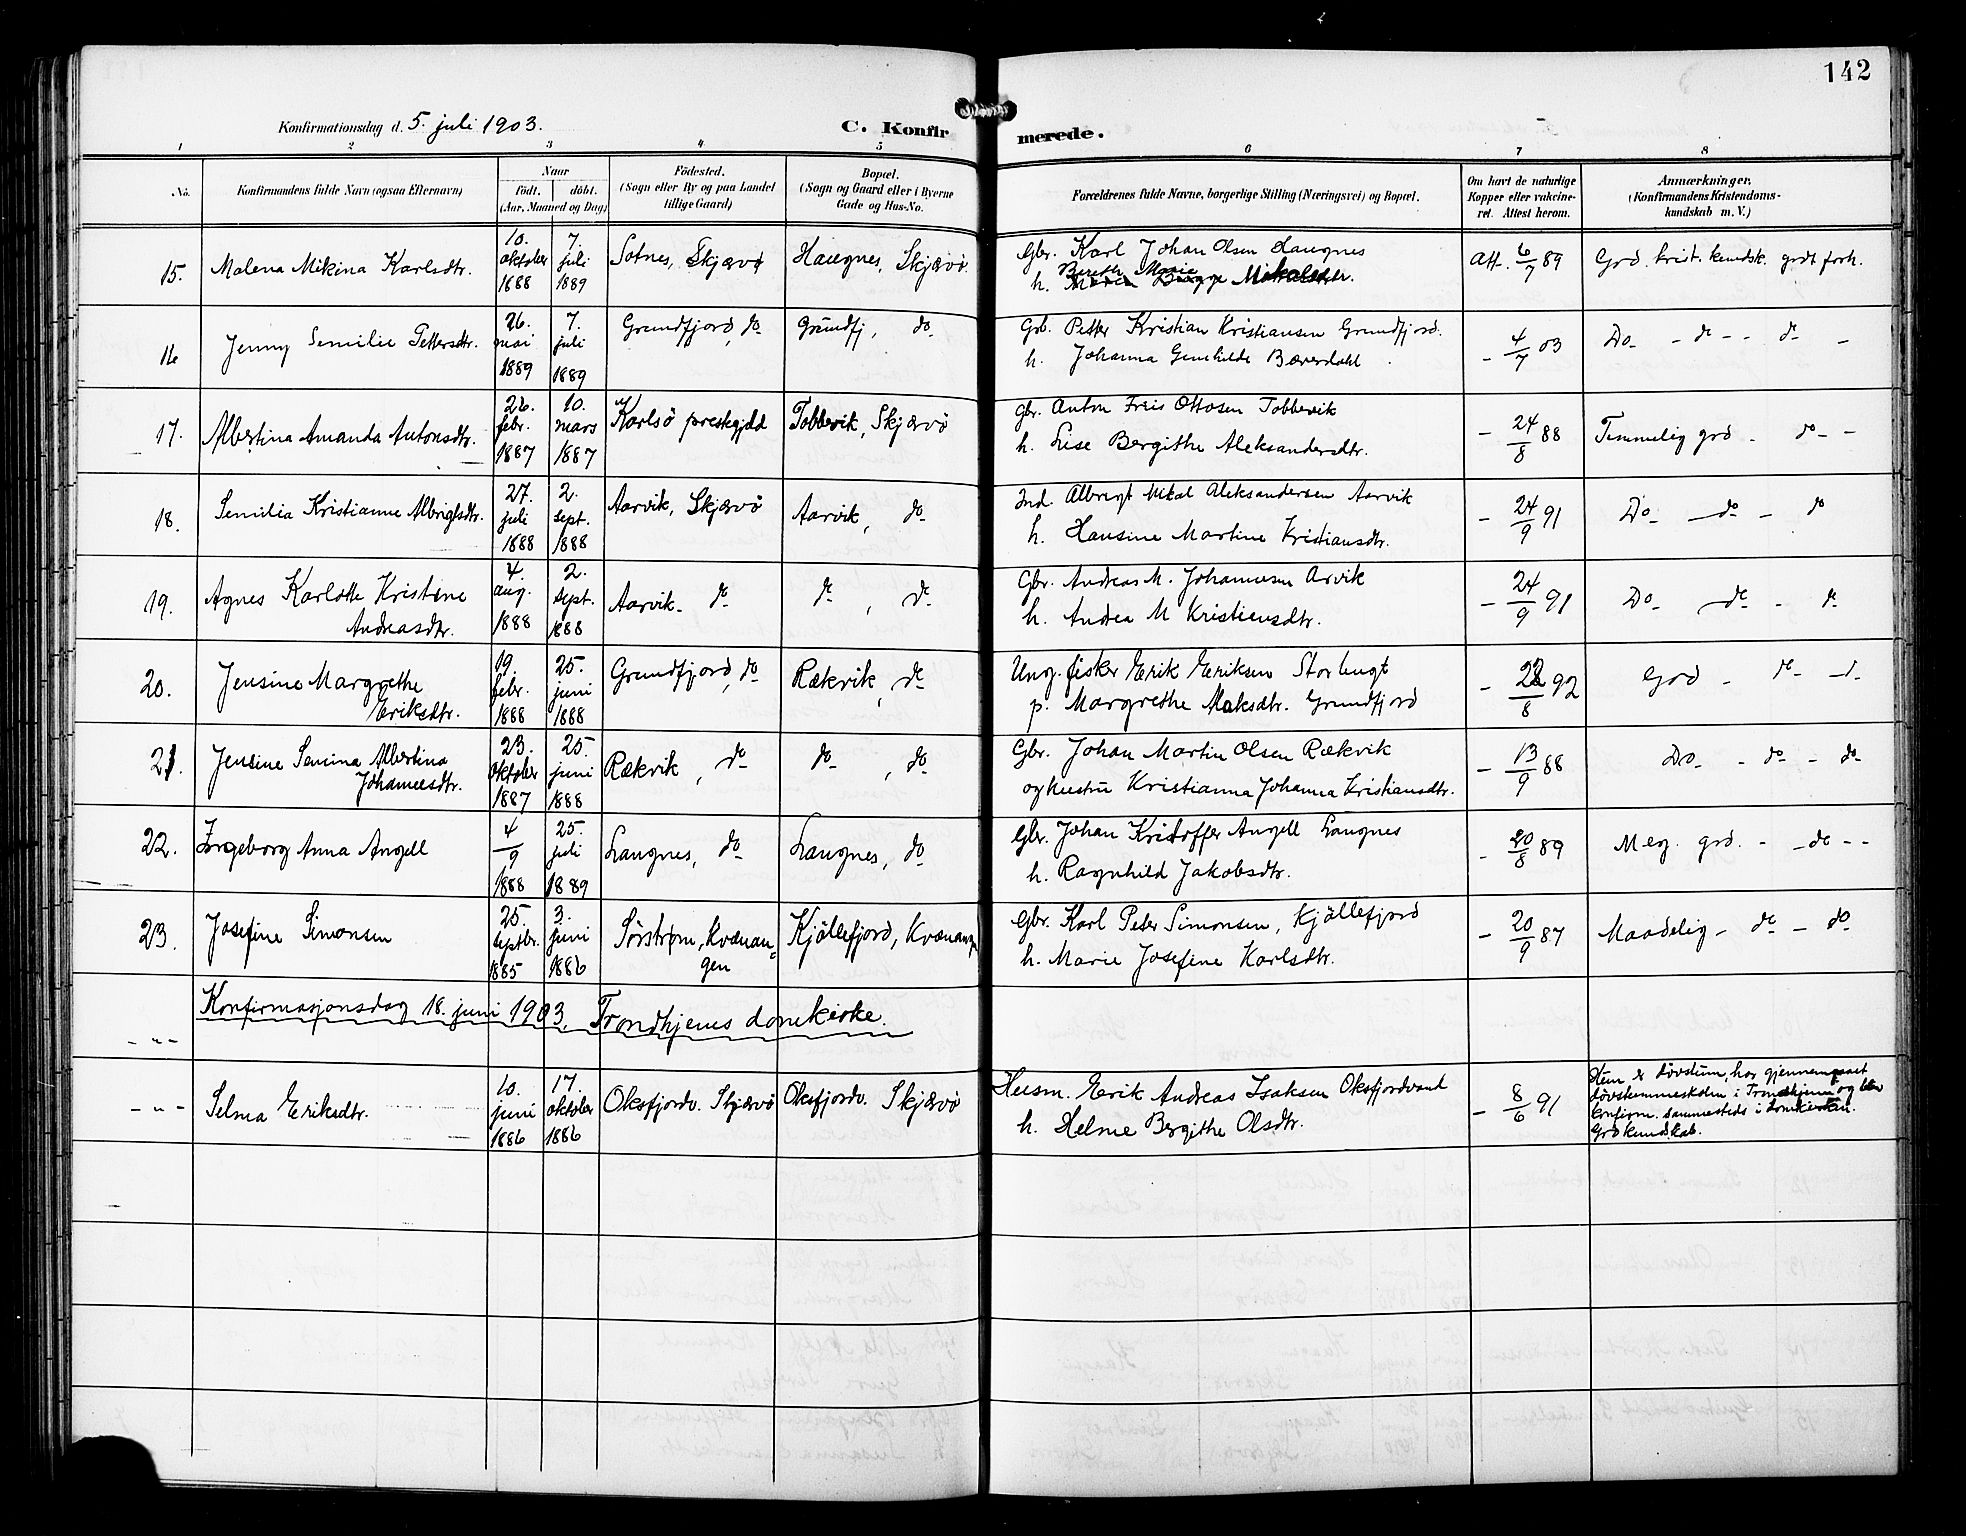 142
Konfirmationsdag d. 5. juli 1903.
C. Konfirmerede.
1 2 3 4 5 6 7 8
No.
Konfirmandens fulde Navn (ogsaa Efternavn)
Naar
födt. döbt.
(Aar, Maaned og Dag)
Födested.
(Sogn eller By og paa Landet
tillige Gaard)
Bopæl.
(Sogn og Gaard eller i Byerne
Gade og Hus-No.
Forældrenes fulde Navne, borgerlige Stilling (Næringsvei) og Bopæl.
Om havt de naturlige
Kopper eller vakcine-
ret. Attest herom.
Anmærkninger.
(Konfirmandens Kristendoms-
kundskab m. V.)
15. Malena Mikina Karlsdtr.
10. oktober 1888
7. juli 1889
Sotnes, Skjærvø
Haugnes, Skjærvø
Gbr. Karl Johan Olsen Haugnes
h. Mikalsdtr.
Att. 6/7 89
God. krist. kundsk. godt forh.
16 Jenny Semilie Pettersdtr.
26. mai 1889
7. juli 1889
Grundfjord, do
Grundfj, do
Gbr. Petter Kristian Kristiansen Grundfjord.
h. Johanna Gunhilde Bæverdahl
- 4/7 03
Do - do - - do -
17. Albertina Amanda Antonsdtr.
26. febr. 1887
10. mars 1887
Karlsö prestegjeld
Tobbevik, Skjærvø
Gbr. Anton Freis Ottosen Tobbevik
h. Lise Bergithe Aleksandersdtr.
- 24/8 88
Temmelig god - do - -
18. Semilia Kristianne Albrigtsdtr.
27. juli 1888
2. sept. 1888
Aarvik, Skjærvø
Aarvik, do
Ind. Albrigt Mikal Aleksandersen Aarvik
h. Hansine Martine Kristiansdtr.
- 24/9 91
Do - do - do
19. Agnes Karlotte Kristine
Andreasdtr.
4. aug. 1888
2. sept. 1888
Aarvik - do
do, do
Gbr. Andreas M. Johannesen Arvik
h. Andrea M Kristiensdtr.
- 24/9 91
Do - do - do
20. Jensine Margrethe
Eriksdtr.
19. febr. 1888
25. juni 1888
Grundfjord, do
Rækvik, do
Ung. fisker Erik Eriksen Storbugt
p. Margrethe Maksdtr. Grundfjord
- 22/8 92
God - do - d.
21. Jensine Senina Albertina
Johannesdtr.
23. oktober 1887
25- juni 1888
Rækvik, do
do, do
Gbr. Johan Martin Olsen Rækvik
og hustru Kristianna Johanna Kristiansdtr.
- 13/9 88
Do - do - do
22. Ingeborg Anna Angell
4/9 1888
25. juli 1889
Laugnes, do
Laugnes, do
Gbr. Johan Kristoffer Angell Laugnes
h. Ragnhild Jakobsdtr.
- 20/8 89
Meg. god. - - do - -
23. Josefine Simonsen
25. septbr. 1885
3. juni 1886
Sörstrøm, Kvænan=
gen
Kjöllefjord, Kvænang
Gbr. Karl Peter Simonsen, Kjöllefjord
h. Marie Josefine Karlsdtr.
- 20/9 87
Maadelig - do - do
Konfirmasjonsdag 18. juni 1903. Trondhjems domkirke.
- " -
- " - Selma Eriksdtr.
10. juni 1886
17. oktober 1886
Oksfjordv. Skjærvö
Oksfjordv. Skjærvø
Husm. Erik Andreas Isaksen Oksfjordvand
h. Helme Bergithe Olsdtr.
- 8/6 91
Hun er døvstum, har gjennemgaaet
døvstummeskolen i Trondhjem og blev
konfirm. sammesteds i domkirken.
God kundskab.